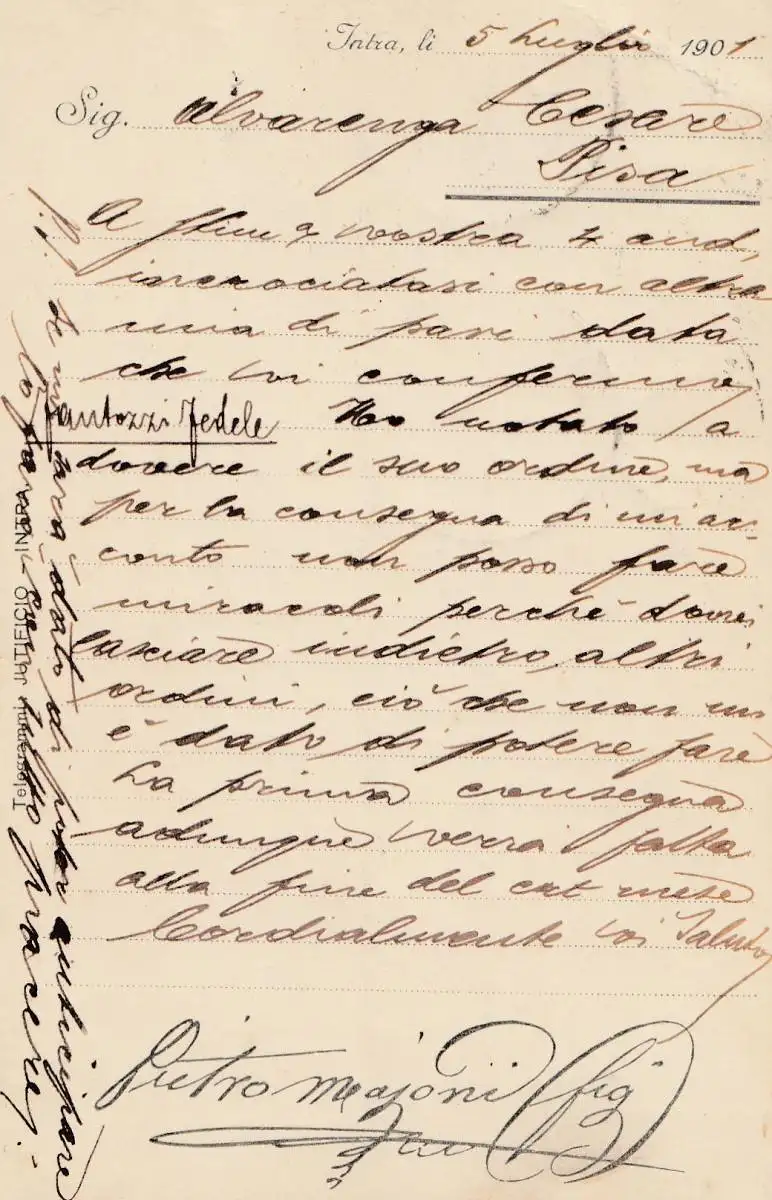 Intra, li 5 Luglio 1901
Sig. Alvarenga Cesare
Pisa
A stim. vostra 4 and.
incrociatasi con altra
mia di pari data
che vi confermo
Fantozzi Fedele Ho notato a
dovere il suo ordine, ma
per la consegna di un ac-
conto non posso fare
miracoli perchè dovrei
lasciare indietro altri
ordini, ciò che non mi
è dato di potere fare
La prima consegna
adunque verrà fatta
alla fine del crt mese
Cordialmente vi saluto
Pietro Majoni fig
P.S. Se mi sarà dato di poter anticipare
lo farò con tutto piacere.
Telegrammi: JUTIFICIO - INTRA